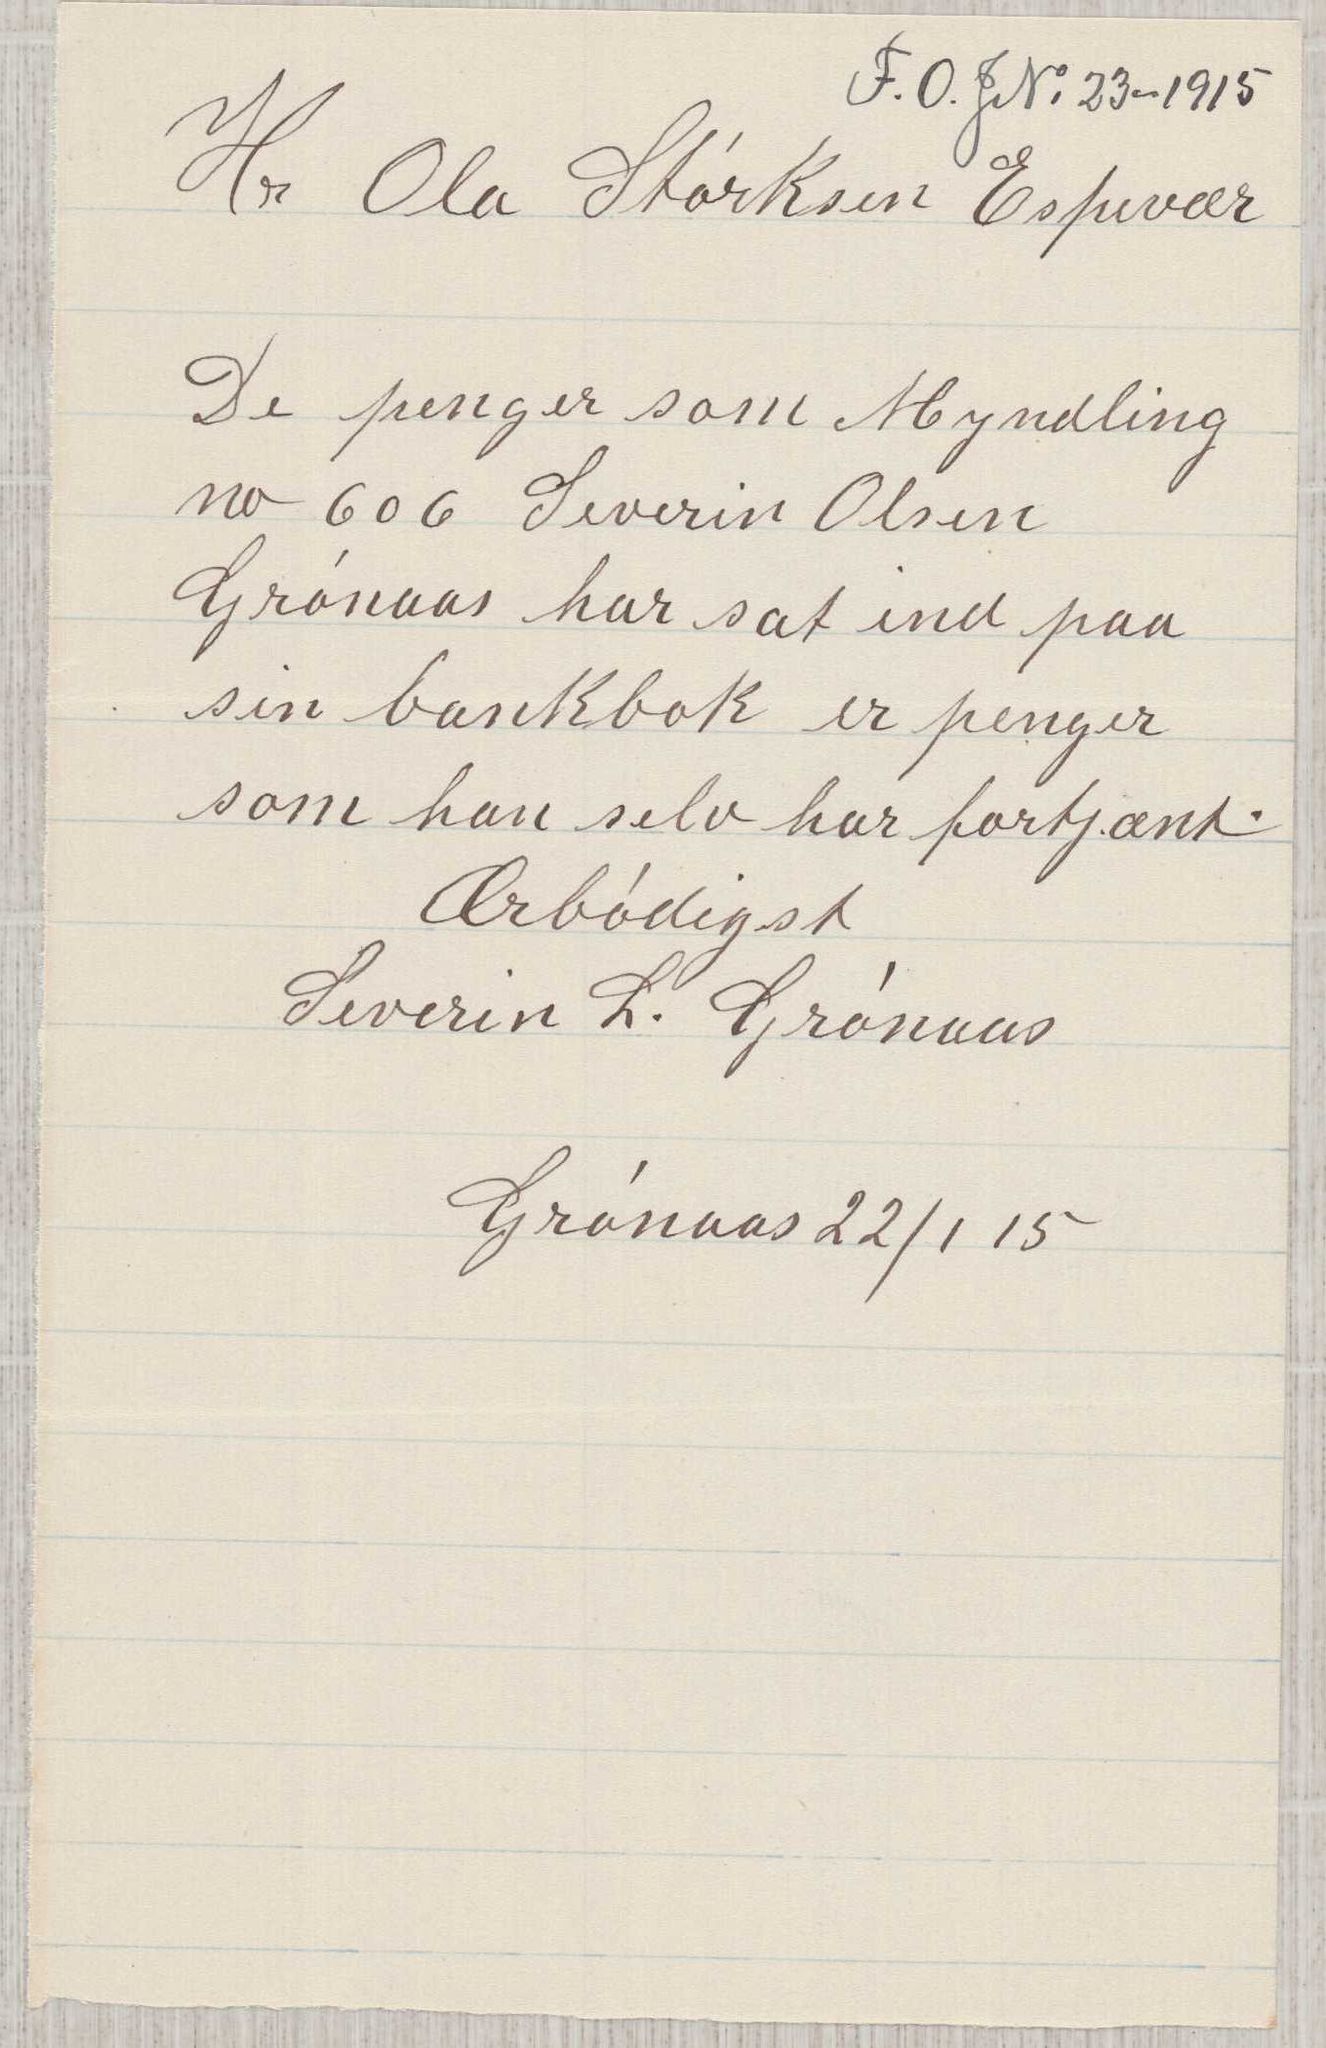 F. O. J No. 23-1915
Hr Ola Størksen Espevær
De penger som Myndling
no 606 Severin Olsen
Grónaas har sat ind paa
sin bankbok er penger
som han selv har fortjænt.
Ærbódigst
Severin L. Grónaas
Grónaas 22/1 15